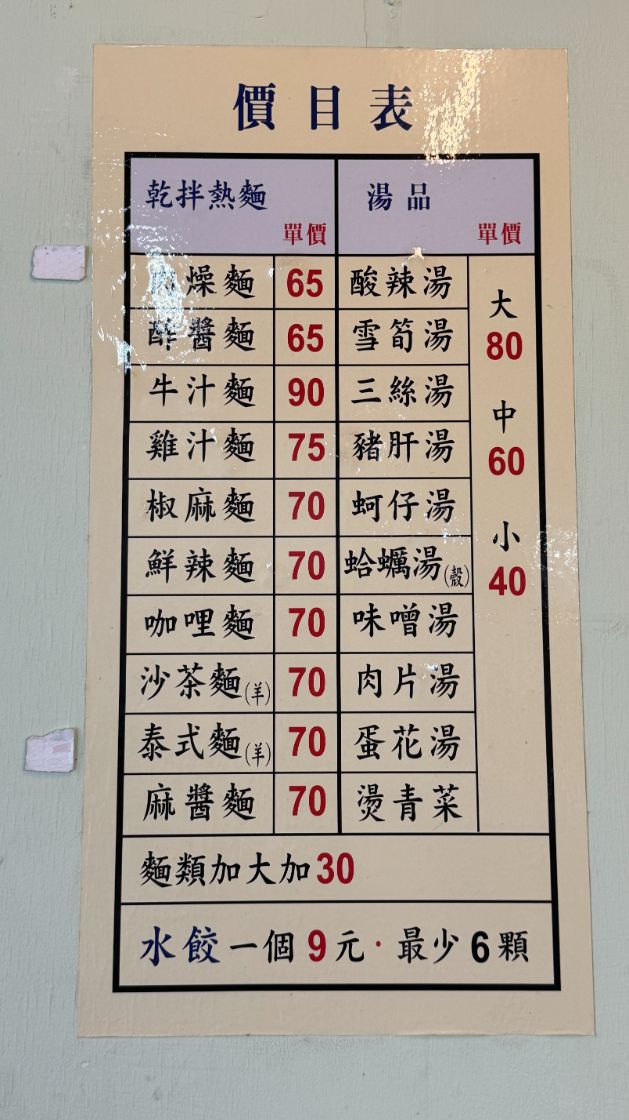 價目表
乾拌熱麵 單價 湯品 單價
燥麵 65 酸辣湯
醬麵 65 雪筍湯
牛汁麵 90 三絲湯
雞汁麵 75 豬肝湯
椒麻麵 70 蚵仔湯
鮮辣麵 70 蛤蠣湯(殼)
咖哩麵 70 味噌湯
沙茶麵(羊) 70 肉片湯
泰式麵(羊) 70 蛋花湯
麻醬麵 70 燙青菜
大
80
中
60
小
40
麵類加大加30
水餃一個9元·最少6顆